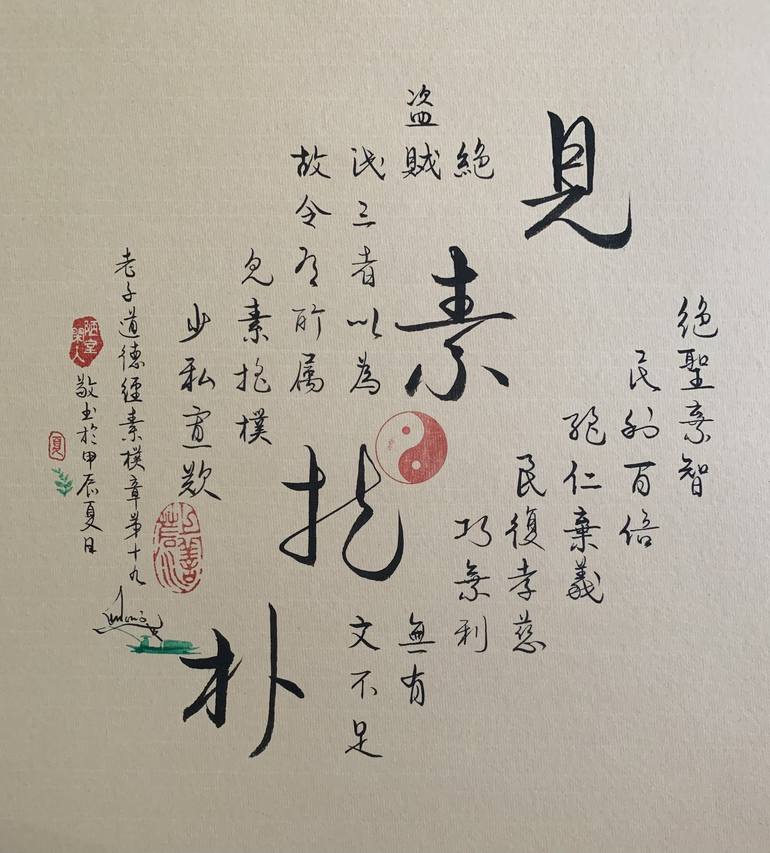 見素抱朴
絕聖棄智
民利百倍
絕仁棄義
民復孝慈
絕巧棄利
盗賊無有
此三者以為文不足
故令有所属
見素抱樸
少私寡欲
老子道德經素樸章第十九
敬书於甲辰夏日
陋室閑人
上善若水